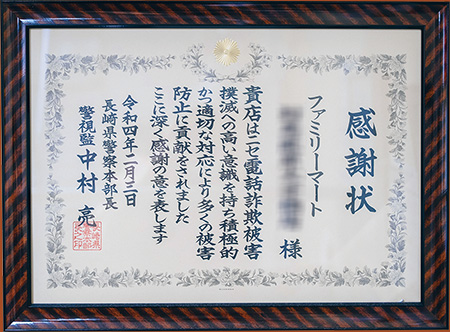 感謝状
ファミリーマート
様
貴店はニセ電話詐欺被害
撲滅への高い意識を持ち積極的
かつ適切な対応により多くの被害
防止に貢献をされました
ここに深く感謝の意を表します
令和四年二月三日
長崎県警察本部長
警視監 中村 亮